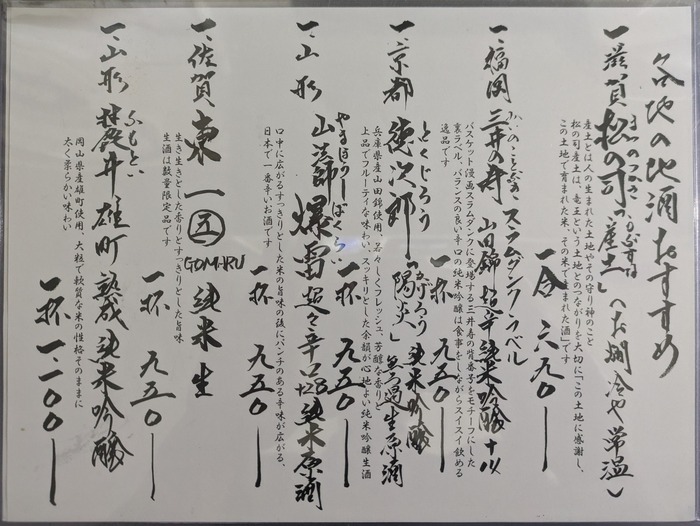 各地の地酒おすすめ
一、滋賀 松の司「産土」（お燗 冷や 常温）
まつのつかさ うぶすな
産土とは人の生まれた土地やその守り神のこと
松の司産土は、竜王という土地とのつながりを大切に「この土地に感謝し、
この土地で育まれた米、その米で生まれた酒」です
一合 六九〇
一、福岡 三井の寿 山田錦 超辛 純米吟醸 十14
みいのことぶき スラムダンクラベル
バスケット漫画スラムダンクに登場する三井寿の背番号をモチーフにした
裏ラベル、バランスの良い辛口の純米吟醸は食事をしながらスイスイ飲める
逸品です
一杯 九五〇
一、京都 徳次郎「陽炎」純米吟醸 無濾過生原酒
とくじろう かげろう
兵庫県産山田錦使用、若々しくフレッシュ、芳醇な香りと
上品でフルーティな味わい、スッキリとした余韻が心地よい純米吟醸生酒
一杯 九五〇
一、山形 山法師 爆雷 超々辛口 +28 純米原酒
やまほうし ばくらい
口中に広がるすっきりとした米の旨味の後にパンチのある辛味が広がる、
日本で一番辛いお酒です
一杯 九五〇
一、佐賀 東一 五 GOMARU 純米 生
生き生きとした香りとすっきりとした旨味
生酒は数量限定品です
一杯 九五〇
一、山形 麓井 雄町 熟成 純米吟醸
ふもとい
岡山県産雄町使用、大粒で軟質な米の性格そのままに
太く柔らかい味わい
一杯 一、一〇〇